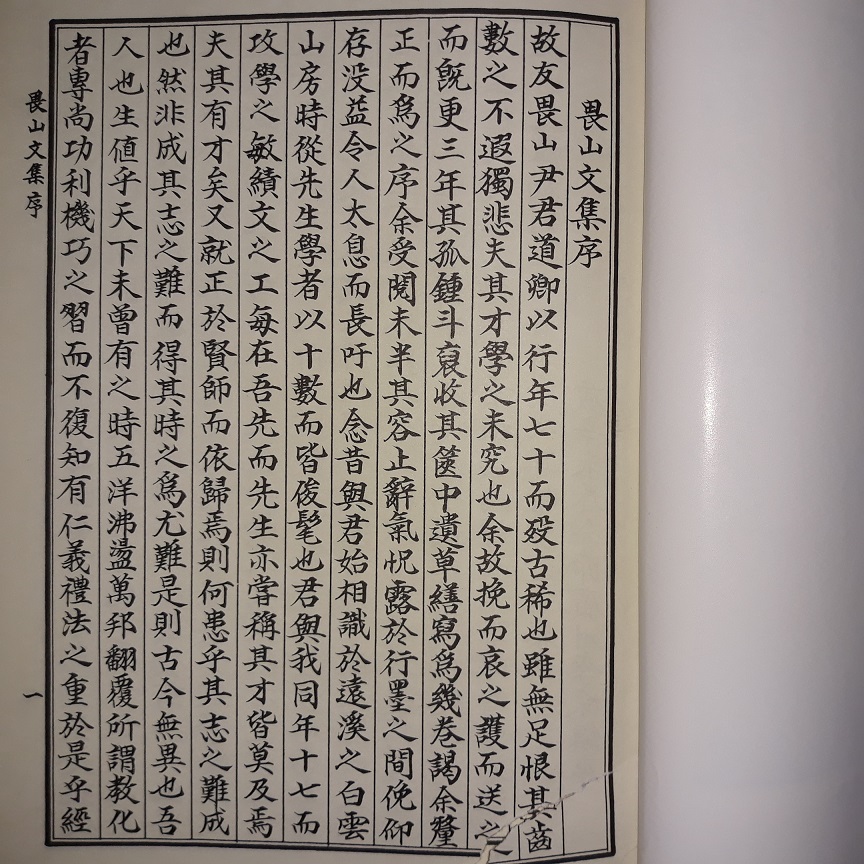 畏山文集序
故友畏山尹君道卿以行年七十而歿古稀也雖無足恨其齒
數之不遐獨悲夫其才學之未究也余故挽而哀之護而送之
而旣更三年其孤鍾斗裒收其篋中遺草繕寫爲幾卷謁余釐
正而爲之序余受閱未半其容止辭氣怳露於行墨之間俛仰
存没益令人太息而長吁也念昔與君始相識於遠溪之白雲
山房時從先生學者以十數而皆俊髦也君與我同年十七而
攻學之敏績文之工每在吾先而先生亦嘗稱其才皆莫及焉
夫其有才矣又就正於賢師而依歸焉則何患乎其志之難成
也然非成其志之難而得其時之爲尤難是則古今無異也吾
人也生値乎天下未曾有之時五洋沸盪萬邦翻覆所謂教化
者專尚功利機巧之習而不復知有仁義禮法之重於是乎經
畏山文集序
一